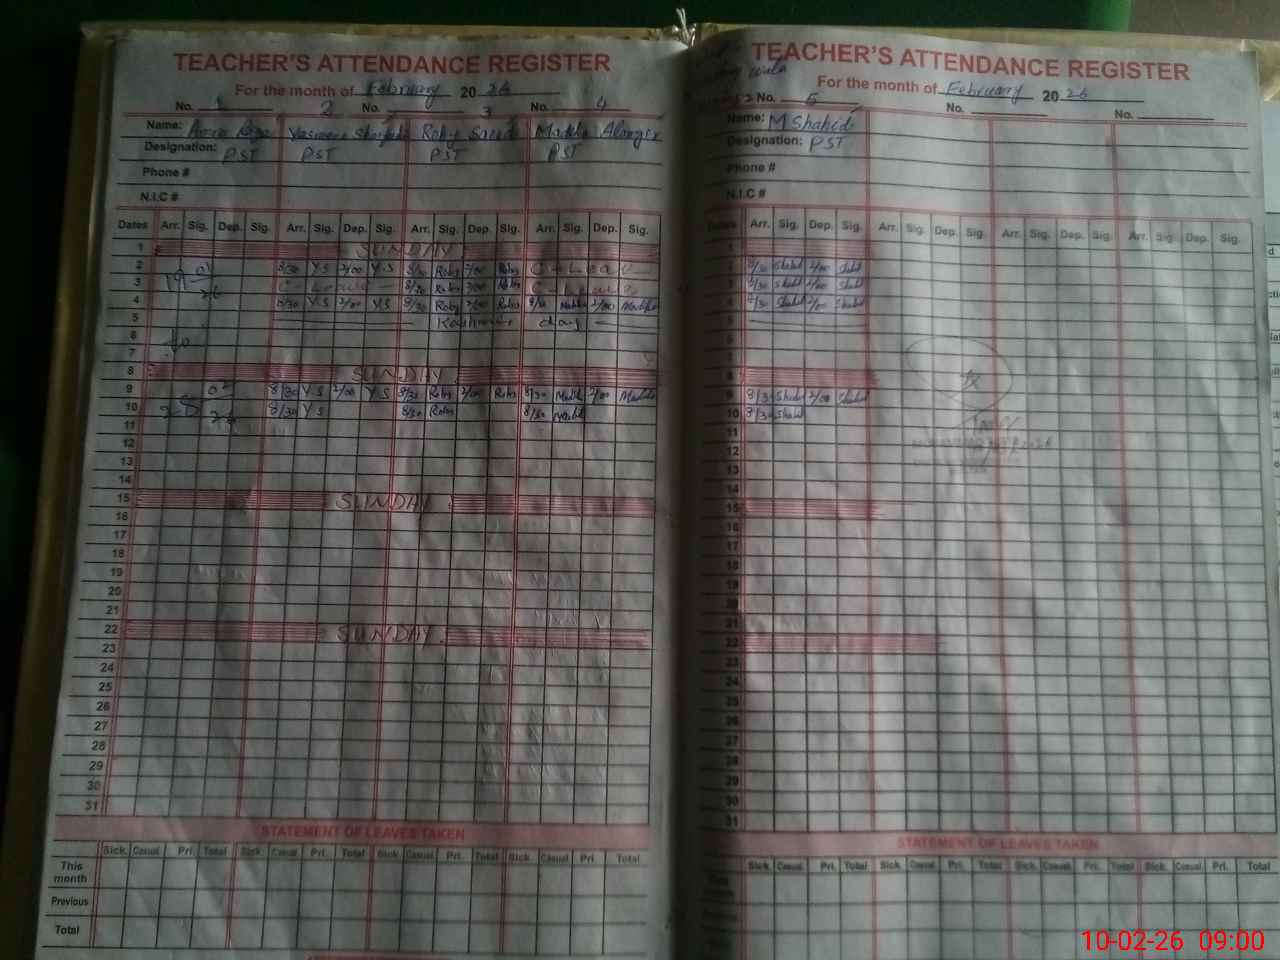 TEACHER'S ATTENDANCE REGISTER
For the month of February 20 26
No. 1 2 No. 3 No. 4
Name: Yasmeen Roby Alamgir
Designation: PST PST PST PST
Phone #
N.I.C #
Dates Arr. Sig. Dep. Sig. Arr. Sig. Dep. Sig. Arr. Sig. Dep. Sig. Arr. Sig. Dep. Sig.
1 SUNDAY
2 8/30 Y.S 2/00 Y.S 8/30 Roby 2/00 Roby C-Leave
3 C-Leave 8/30 Roby 2/00 Roby C-Leave
4 8/30 Y.S 2/00 Y.S 8/30 Roby 2/00 Roby 8/30 2/00
5 Kashmir day
6
7
8 SUNDAY
9 8/30 Y.S 2/00 Y.S 8/30 Roby 2/00 Roby 8/30 2/00
10 8/30 Y.S 8/30 Roby 8/30
11
12
13
14
15 SUNDAY
16
17
18
19
20
21
22 SUNDAY
23
24
25
26
27
28
29
30
31
STATEMENT OF LEAVES TAKEN
Sick. Casual Pri. Total Sick. Casual Pri. Total Sick. Casual Pri. Total Sick. Casual Pri. Total
This month
Previous
Total
TEACHER'S ATTENDANCE REGISTER
For the month of February 20 26
No. 5 No. No.
Name: M Shahid
Designation: PST
Phone #
N.I.C #
Dates Arr. Sig. Dep. Sig. Arr. Sig. Dep. Sig. Arr. Sig. Dep. Sig. Arr. Sig. Dep. Sig.
1
2 8/30 Shahid 2/00 Shahid
3 8/30 Shahid 2/00 Shahid
4 8/30 Shahid 2/00 Shahid
5
6
7
8
9 8/30 Shahid 2/00 Shahid
10 8/30 Shahid
11
12
13
14
15
16
17
18
19
20
21
22
23
24
25
26
27
28
29
30
31
STATEMENT OF LEAVES TAKEN
Sick Casual Pri. Total Sick. Casual Pri. Total Sick. Casual Pri. Total Sick. Casual Pri. Total
10-02-26 09:00